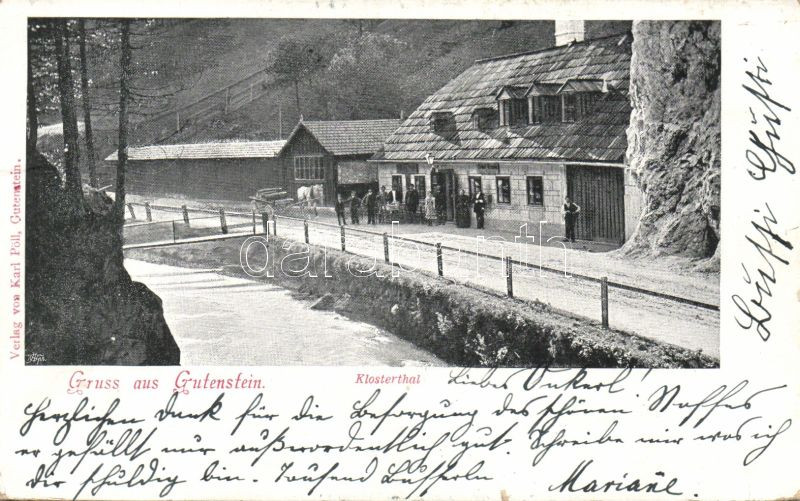 Verlag von Karl Pöll, Gutenstein.
darabanth
Gruss aus Gutenstein.
Klosterthal
Liebes Onkerl!
Herzlichen Dank für die Besorgung des schönen Stoffes
er gefällt mir außerordentlich gut. Schreibe mir was ich
dir schuldig bin. Tausend Busserln
Mariane.
Bussi Gusti